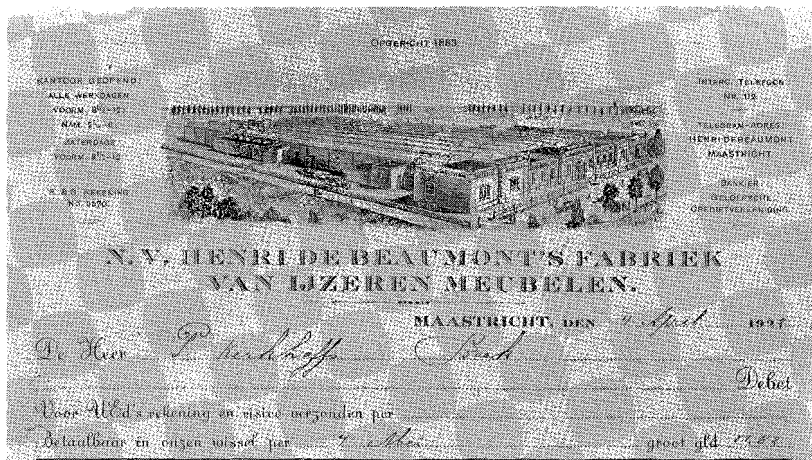 OPGERICHT 1883
KANTOOR GEOPEND
ALLE WERKDAGEN
VOORM.
NAM.
ZATERDAGS
VOORM.
INTERC. TELEFOON
TELEGRAM-ADRES
HENRI DE BEAUMONT
MAASTRICHT
BANKIER
GELDERSCHE
CREDIETVEREENIGING
N. V. HENRI DE BEAUMONT'S FABRIEK
VAN IJZEREN MEUBELEN.
MAASTRICHT, DEN April
De Heer P. Kerkhoffs
Debet
Voor UEd's rekening en risico verzonden per
Betaalbaar in onzen wissel per groot gld